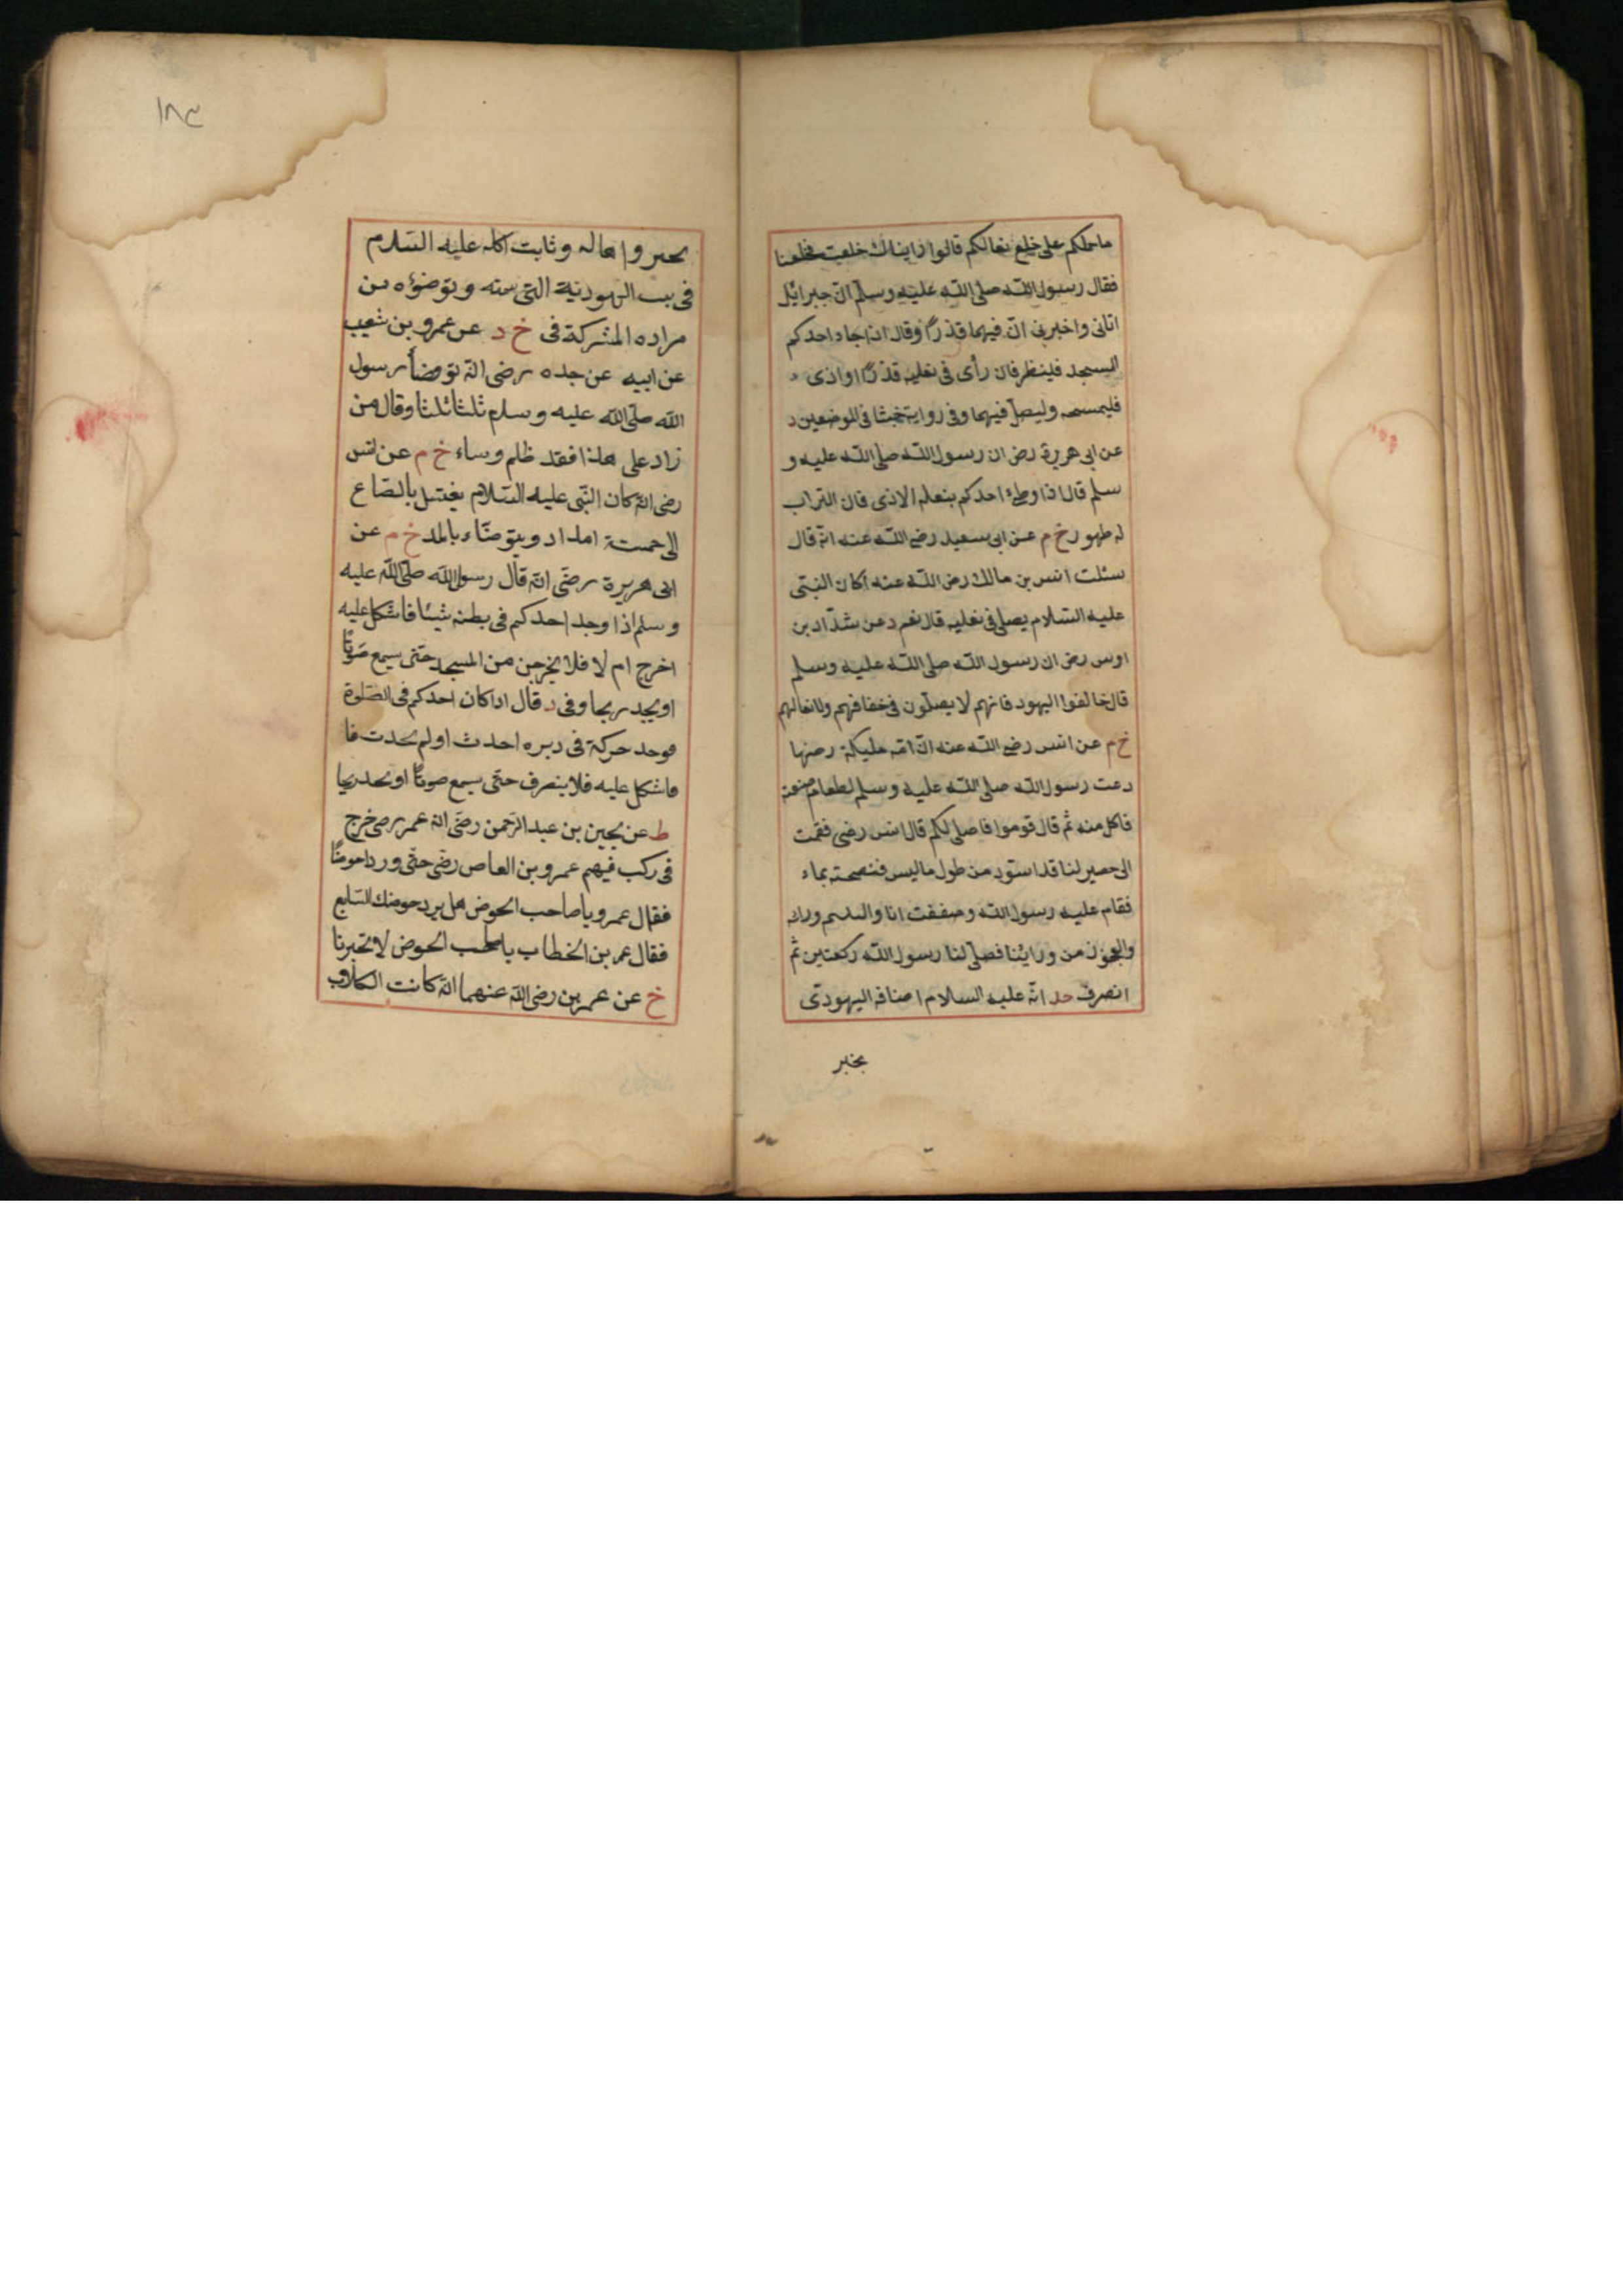 ماحملكم على خلع نعالكم قالوا رايناك خلعت فخلعنا
فقال رسول الله صلى الله عليه وسلم ان جبرائيل
اتانى واخبرنى ان فيهما قذرًا وقال اذا جاء احدكم
المسجد فلينظر فان رأى فى نعليه قذرًا او اذى
فليمسحه وليصل فيهما وفى رواية خبثا فى الموضعين د
عن ابى هريرة رض ان رسول الله صلى الله عليه و
سلم قال اذا وطئ احدكم بنعله الاذى فان التراب
له طهور خ م عن ابى سعيد رضى الله عنه انه قال
سئلت انس بن مالك رضى الله عنه اكان النبى
عليه السلام يصلى فى نعليه قال نعم د عن شداد بن
اوس رض ان رسول الله صلى الله عليه وسلم
قال خالفوا اليهود فانهم لا يصلون فى خفافهم ولا نعالهم
خ م عن انس رضى الله عنه ان امه مليكة رضها
دعت رسول الله صلى الله عليه وسلم لطعام صنعته
فاكل منه ثم قال قوموا فاصلى لكم قال انس رضى فقمت
الى حصير لنا قد اسود من طول ما لبس فنضحته بماء
فقام عليه رسول الله وصففت انا واليتيم وراه
والعجوز من ورائنا فصلى لنا رسول الله ركعتين ثم
انصرف حد انه عليه السلام اضافه اليهودى
بخبر
١٨٣
بخبر واهاله وثابت اكله عليه السلام
فى بيت اليهودية التى سمته وتوضؤه من
مزاده المشركة فى خ د عن عمرو بن شعيب
عن ابيه عن جده رضى انه توضأ رسول
الله صلى الله عليه وسلم ثلثا ثلثا وقال من
زاد على هذا فقد ظلم وساء خ م عن انس
رضى انه كان النبى عليه السلام يغتسل بالصاع
الى خمسة امداد ويتوضاء بالمد خ م عن
ابى هريرة رضى انه قال رسول الله صلى الله عليه
وسلم اذا وجد احدكم فى بطنه شيئا فاشكل عليه
اخرج ام لا فلا يخرجن من المسجد حتى يسمع صوتًا
او يجد ريحا وفى د قال اذا كان احدكم فى الصلوة
فوجد حركة فى دبره احدث او لم يحدث فا
فاشكل عليه فلا ينصرف حتى يسمع صوتًا او يجد ريحا
ط عن يحيى بن عبد الرحمن رضى ان عمر رضى خرج
فى ركب فيهم عمرو بن العاص رضى حتى وردا حوضًا
فقال عمرو يا صاحب الحوض هل يرد حوضك السباع
فقال عمر بن الخطاب يا صاحب الحوض لا تخبرنا
خ عن عمر بن رضى الله عنهما انه كانت الكلاب